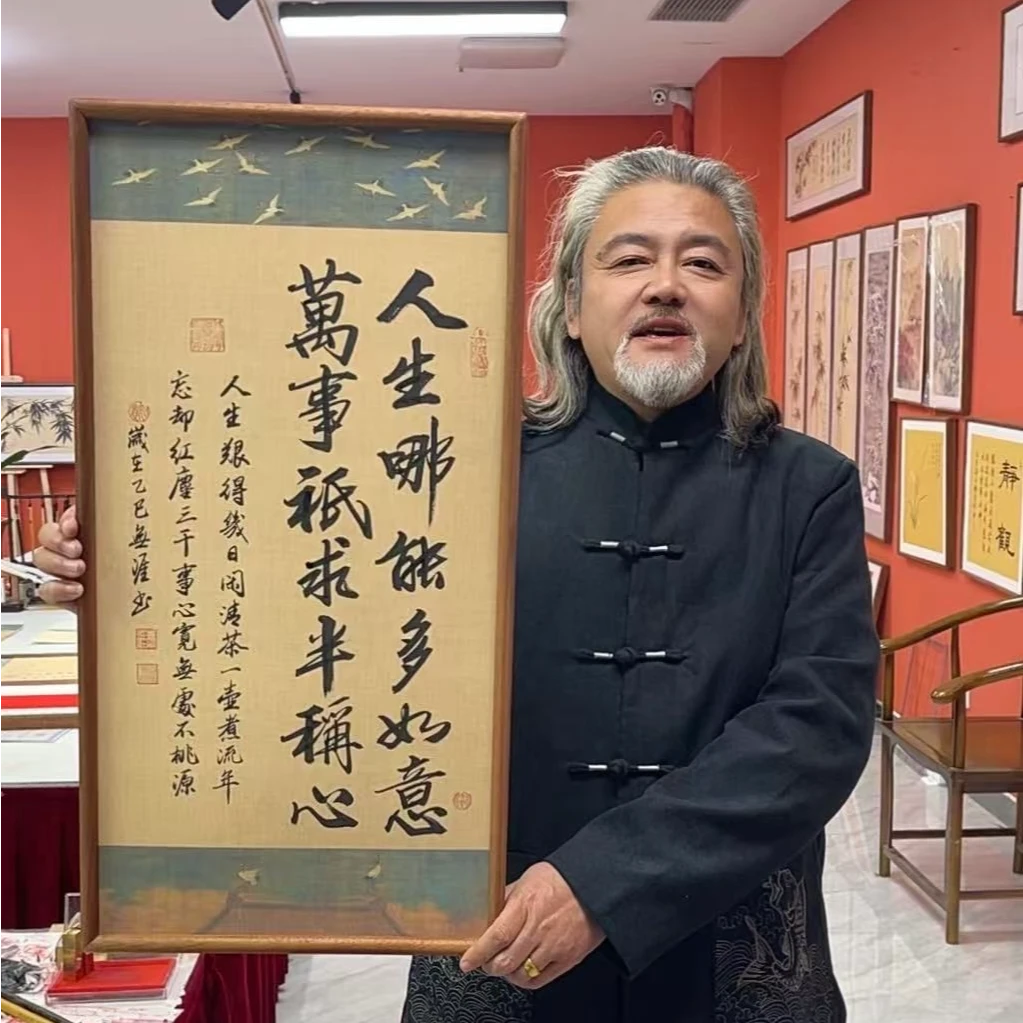 人生哪能多如意
萬事祇求半稱心
人生艱得幾日闲清茶一壺煮流年
忘却红塵三千事心寬無處不桃源
歲在乙巳無涯书
靜觀